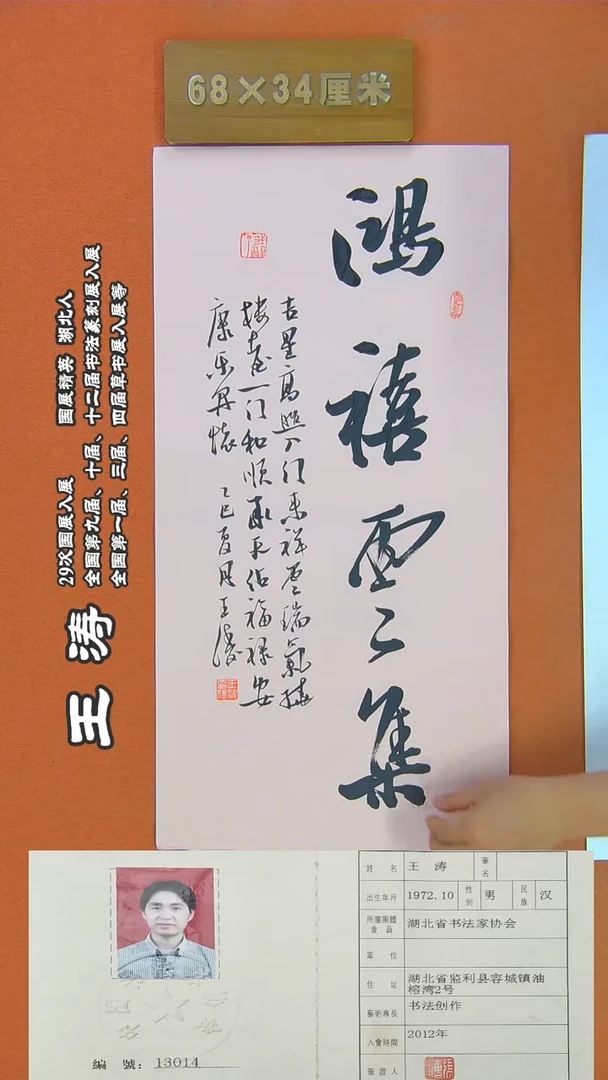 68×34厘米
鸿禧雲集
吉星高照入门来祥云瑞气绕
楼台一门和顺承天佑福禄安
康乐开怀 乙巳夏月王涛
王涛
29次国展入展 国展精英 湖北人
全国第九届、十届、十二届书法篆刻展入展
全国第一届、三届、四届草书展入展等
姓名 王涛 筆名
出生年月 1972.10 性別 男 民族 汉
所屬團體會員 湖北省书法家协会
單位
住址 湖北省监利县容城镇油榕湾2号
藝術專長 书法创作
入會時間 2012年
簽證人
編號：13014